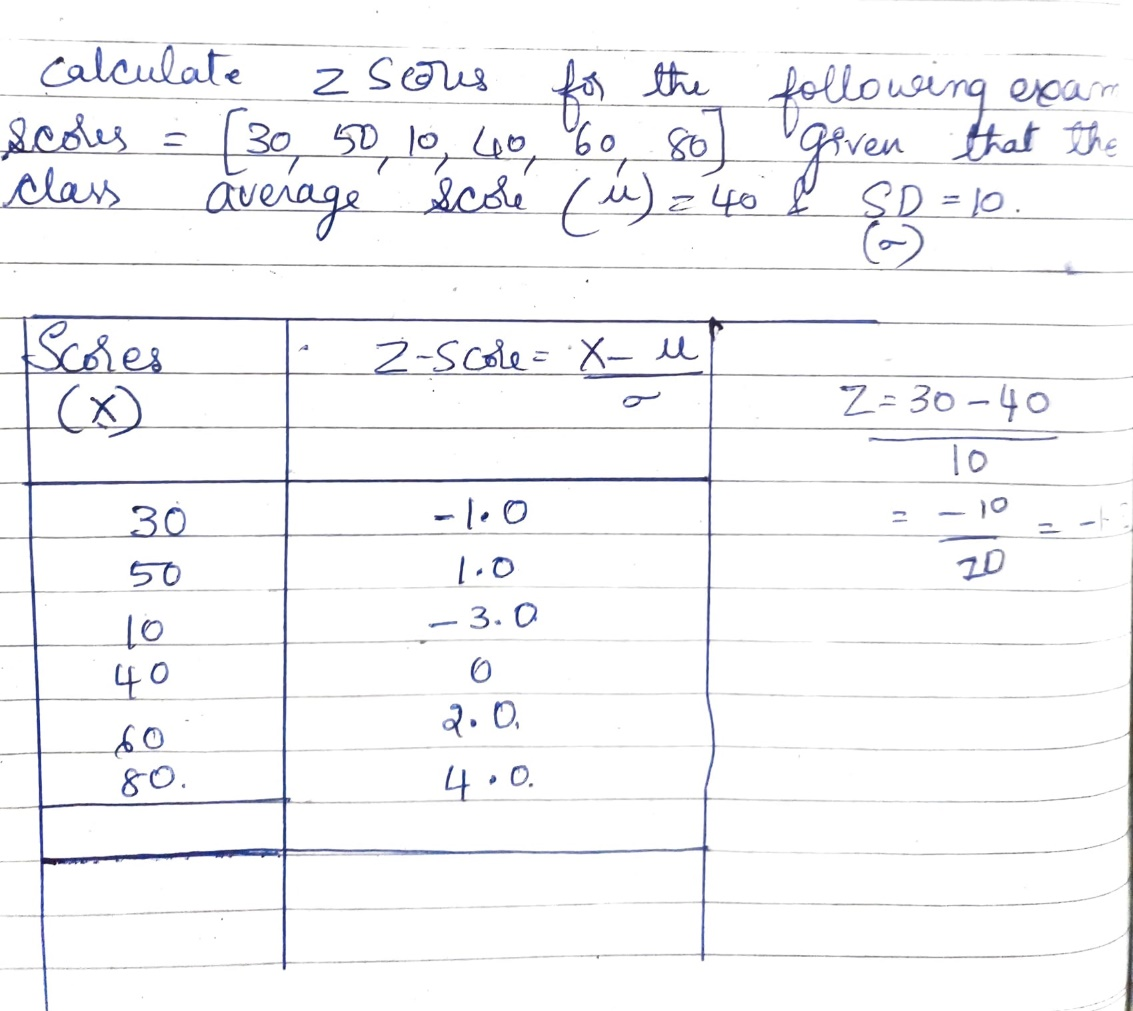 Calculate Z Scores for the following exam
Scores = [30, 50, 10, 40, 60, 80] Given that the
class average Score (μ) = 40 & SD = 10.
(σ)
Scores Z-Score = X - μ
(X) σ
Z = 30 - 40
10
30 -1.0 = -10 =
10
50 1.0
10 -3.0
40 0
60 2.0.
80. 4.0.